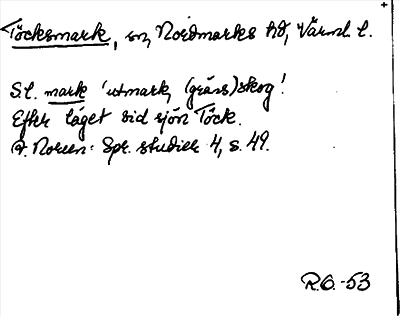 Töcksmark, sn, Nordmarks hd, Värml. l.
S.l. mark 'utmark, (gräns)skog'
Efter läget vid sjön Töck.
A. Noreen: Spr. studier 4, s. 49.
R.O. -53